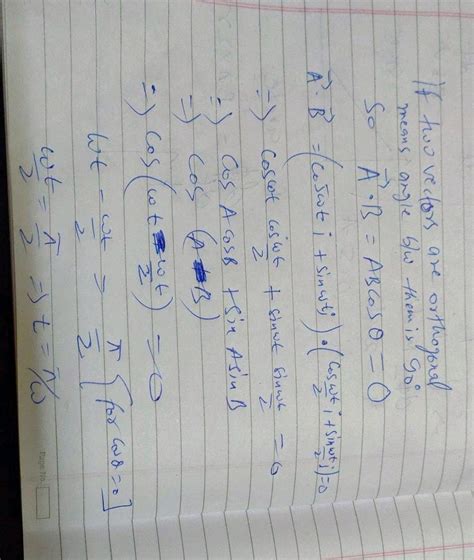 If two vectors are orthogonal
means angle b/w them is 90°
So A⃗·B⃗ = ABcosθ = 0
A⃗·B⃗ = (cosωt i + sinωt j)·(cos ωt/2 i + sin ωt/2 j) = 0
=) cosωt cos ωt/2 + sinωt sin ωt/2 = 0
=) cosAcosB + sinAsinB
=) cos (A-B)
=) cos(ωt - ωt/2) = 0
ωt - ωt/2 = π/2 {for cosθ=0]
ωt/2 = π/2 => t = π/ω
Page No.